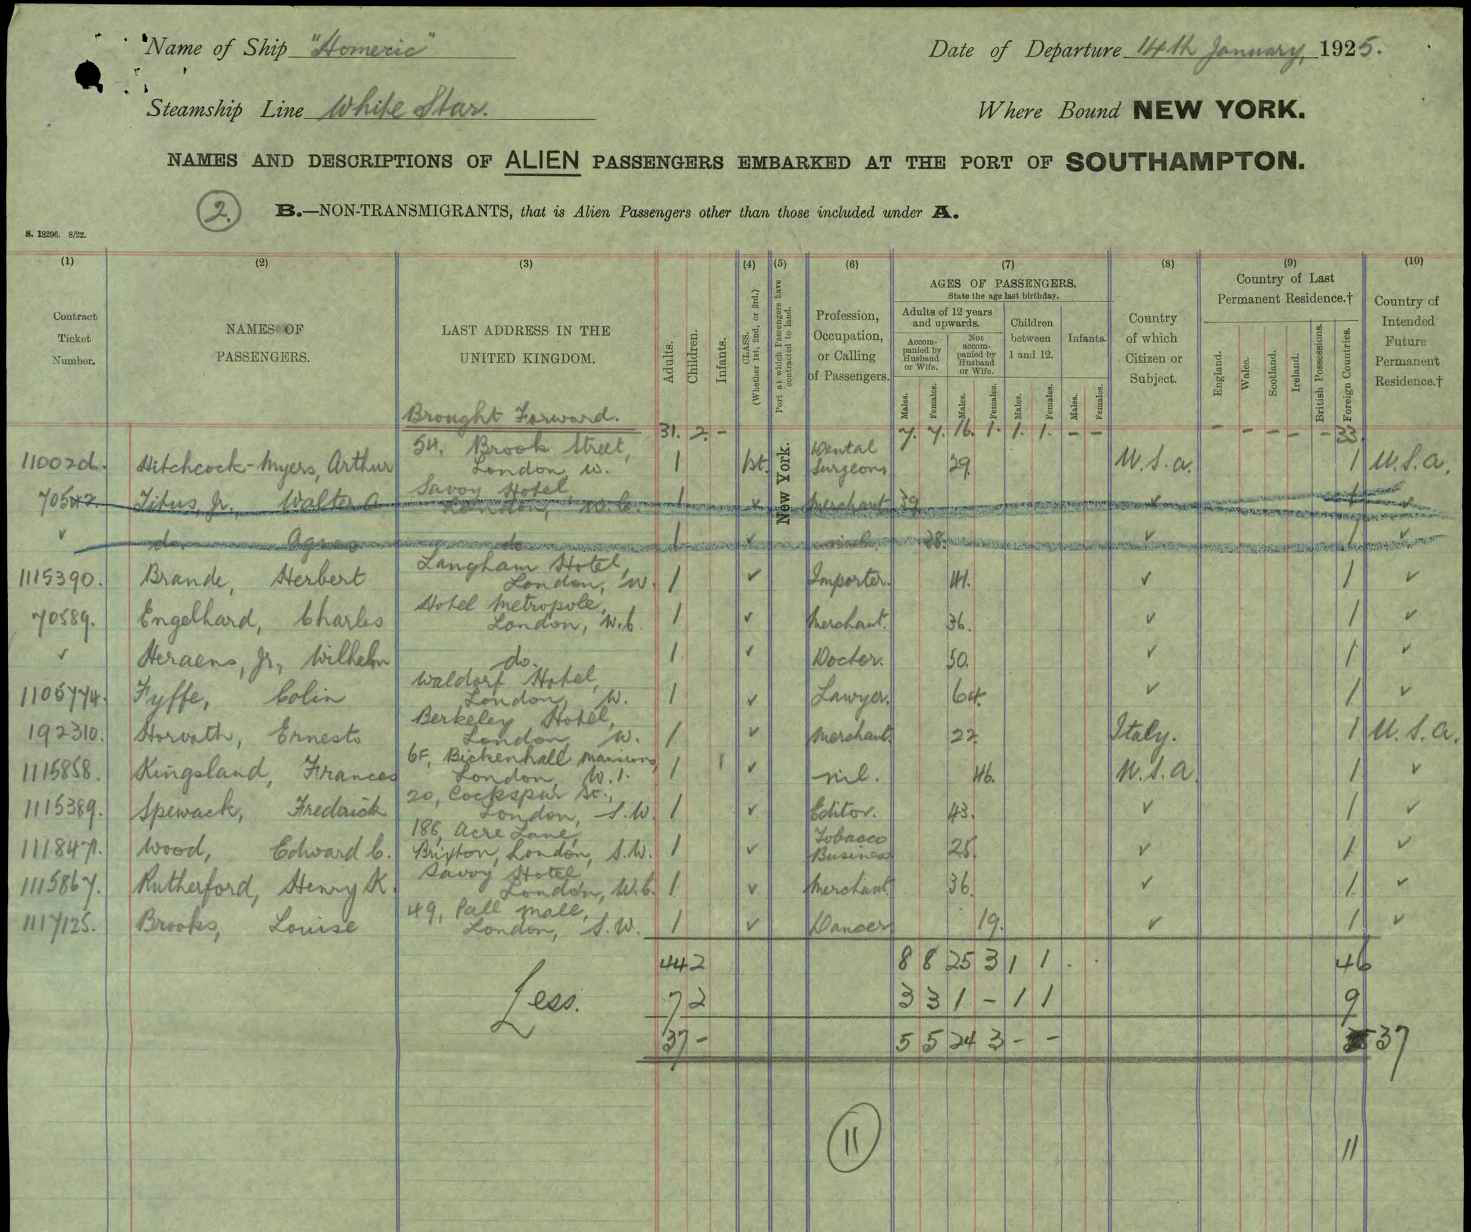 Name of Ship "Homeric"
Date of Departure 14th January, 1925.
Steamship Line White Star.
Where Bound NEW YORK.
NAMES AND DESCRIPTIONS OF ALIEN PASSENGERS EMBARKED AT THE PORT OF SOUTHAMPTON.
2.
B.—NON-TRANSMIGRANTS, that is Alien Passengers other than those included under A.
S. 18296. 8/22.
(1) (2) (3) (4) (5) (6) (7) (8) (9) (10)
Contract Ticket Number.
NAMES OF PASSENGERS.
LAST ADDRESS IN THE UNITED KINGDOM.
Adults.
Children.
Infants.
CLASS. (Whether 1st, 2nd, or 3rd.)
Port at which Passengers have contracted to land.
Profession, Occupation, or Calling of Passengers.
AGES OF PASSENGERS.
State the age last birthday.
Adults of 12 years and upwards.
Accompanied by Husband or Wife.
Not accompanied by Husband or Wife.
Children between 1 and 12.
Infants.
Males. Females. Males. Females. Males. Females. Males. Females.
Country of which Citizen or Subject.
Country of Last Permanent Residence.†
England. Wales. Scotland. Ireland. British Possessions. Foreign Countries.
Country of Intended Future Permanent Residence.†
Brought Forward. 31. 2. - 7. 7. 16. 1. 1. 1. - - - - - - - 33.
New York.
110026. Hitchcock-Myers, Arthur 54, Brook Street, London, W. 1 1st. Dental Surgeon 29. U.S.A. 1 U.S.A.
70542 Titus, Jr., Walter A Savoy Hotel, London, W.C. 1 ✓ Merchant 39 ✓ 1 ✓
✓ do Agnes do 1 ✓ nil. 38. ✓ 1 ✓
1115390. Brande, Herbert Langham Hotel, London, W. 1 ✓ Importer. 41. ✓ 1 ✓
70589. Engelhard, Charles Hotel Metropole, London, W.C. 1 ✓ Merchant. 36. ✓ 1 ✓
✓ Heraens, Jr., Wilhelm do. 1 ✓ Doctor. 50. ✓ 1 ✓
1105774. Fyffe, Colin Waldorf Hotel, London, W. 1 ✓ Lawyer. 64. ✓ 1 ✓
192310. Horvath, Ernesto Berkeley Hotel, London, W. 1 ✓ Merchant. 22. Italy. 1 U.S.A.
1115858. Kingsland, Frances 6F, Bickenhall Mansions, London, W.1. 1 1 ✓ nil. 46. U.S.A. 1 ✓
1115389. Spewack, Frederick 20, Cockspur St., London, S.W. 1 ✓ Editor. 43. ✓ 1 ✓
1118471. Wood, Edward C. 186, Acre Lane, Brixton, London, S.W. 1 ✓ Tobacco Business 25. ✓ 1 ✓
1115867. Rutherford, Henry K. Savoy Hotel, London, W.C. 1 ✓ Merchant. 36. ✓ 1 ✓
1117125. Brooks, Louise 49, Pall Mall, London, S.W. 1 ✓ Dancer 19. ✓ 1 ✓
44 2 8 8 25 3 1 1 . . 46
Less. 7 2 3 3 1 - 1 1 9
37 - 5 5 24 3 - - 37
11 11